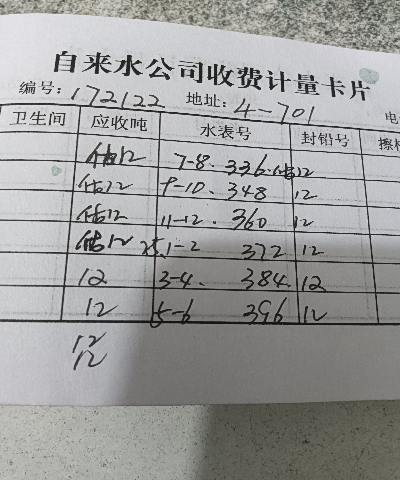 自来水公司收费计量卡片
编号:172122 地址:4-701
卫生间 应收吨 水表号 封铅号
估12 7-8. 336.估12
估12 9-10. 348 12
估12 11-12. 360 12
估12 25.1-2 372 12
12 3-4. 384. 12
12 5-6 396 12
12
12